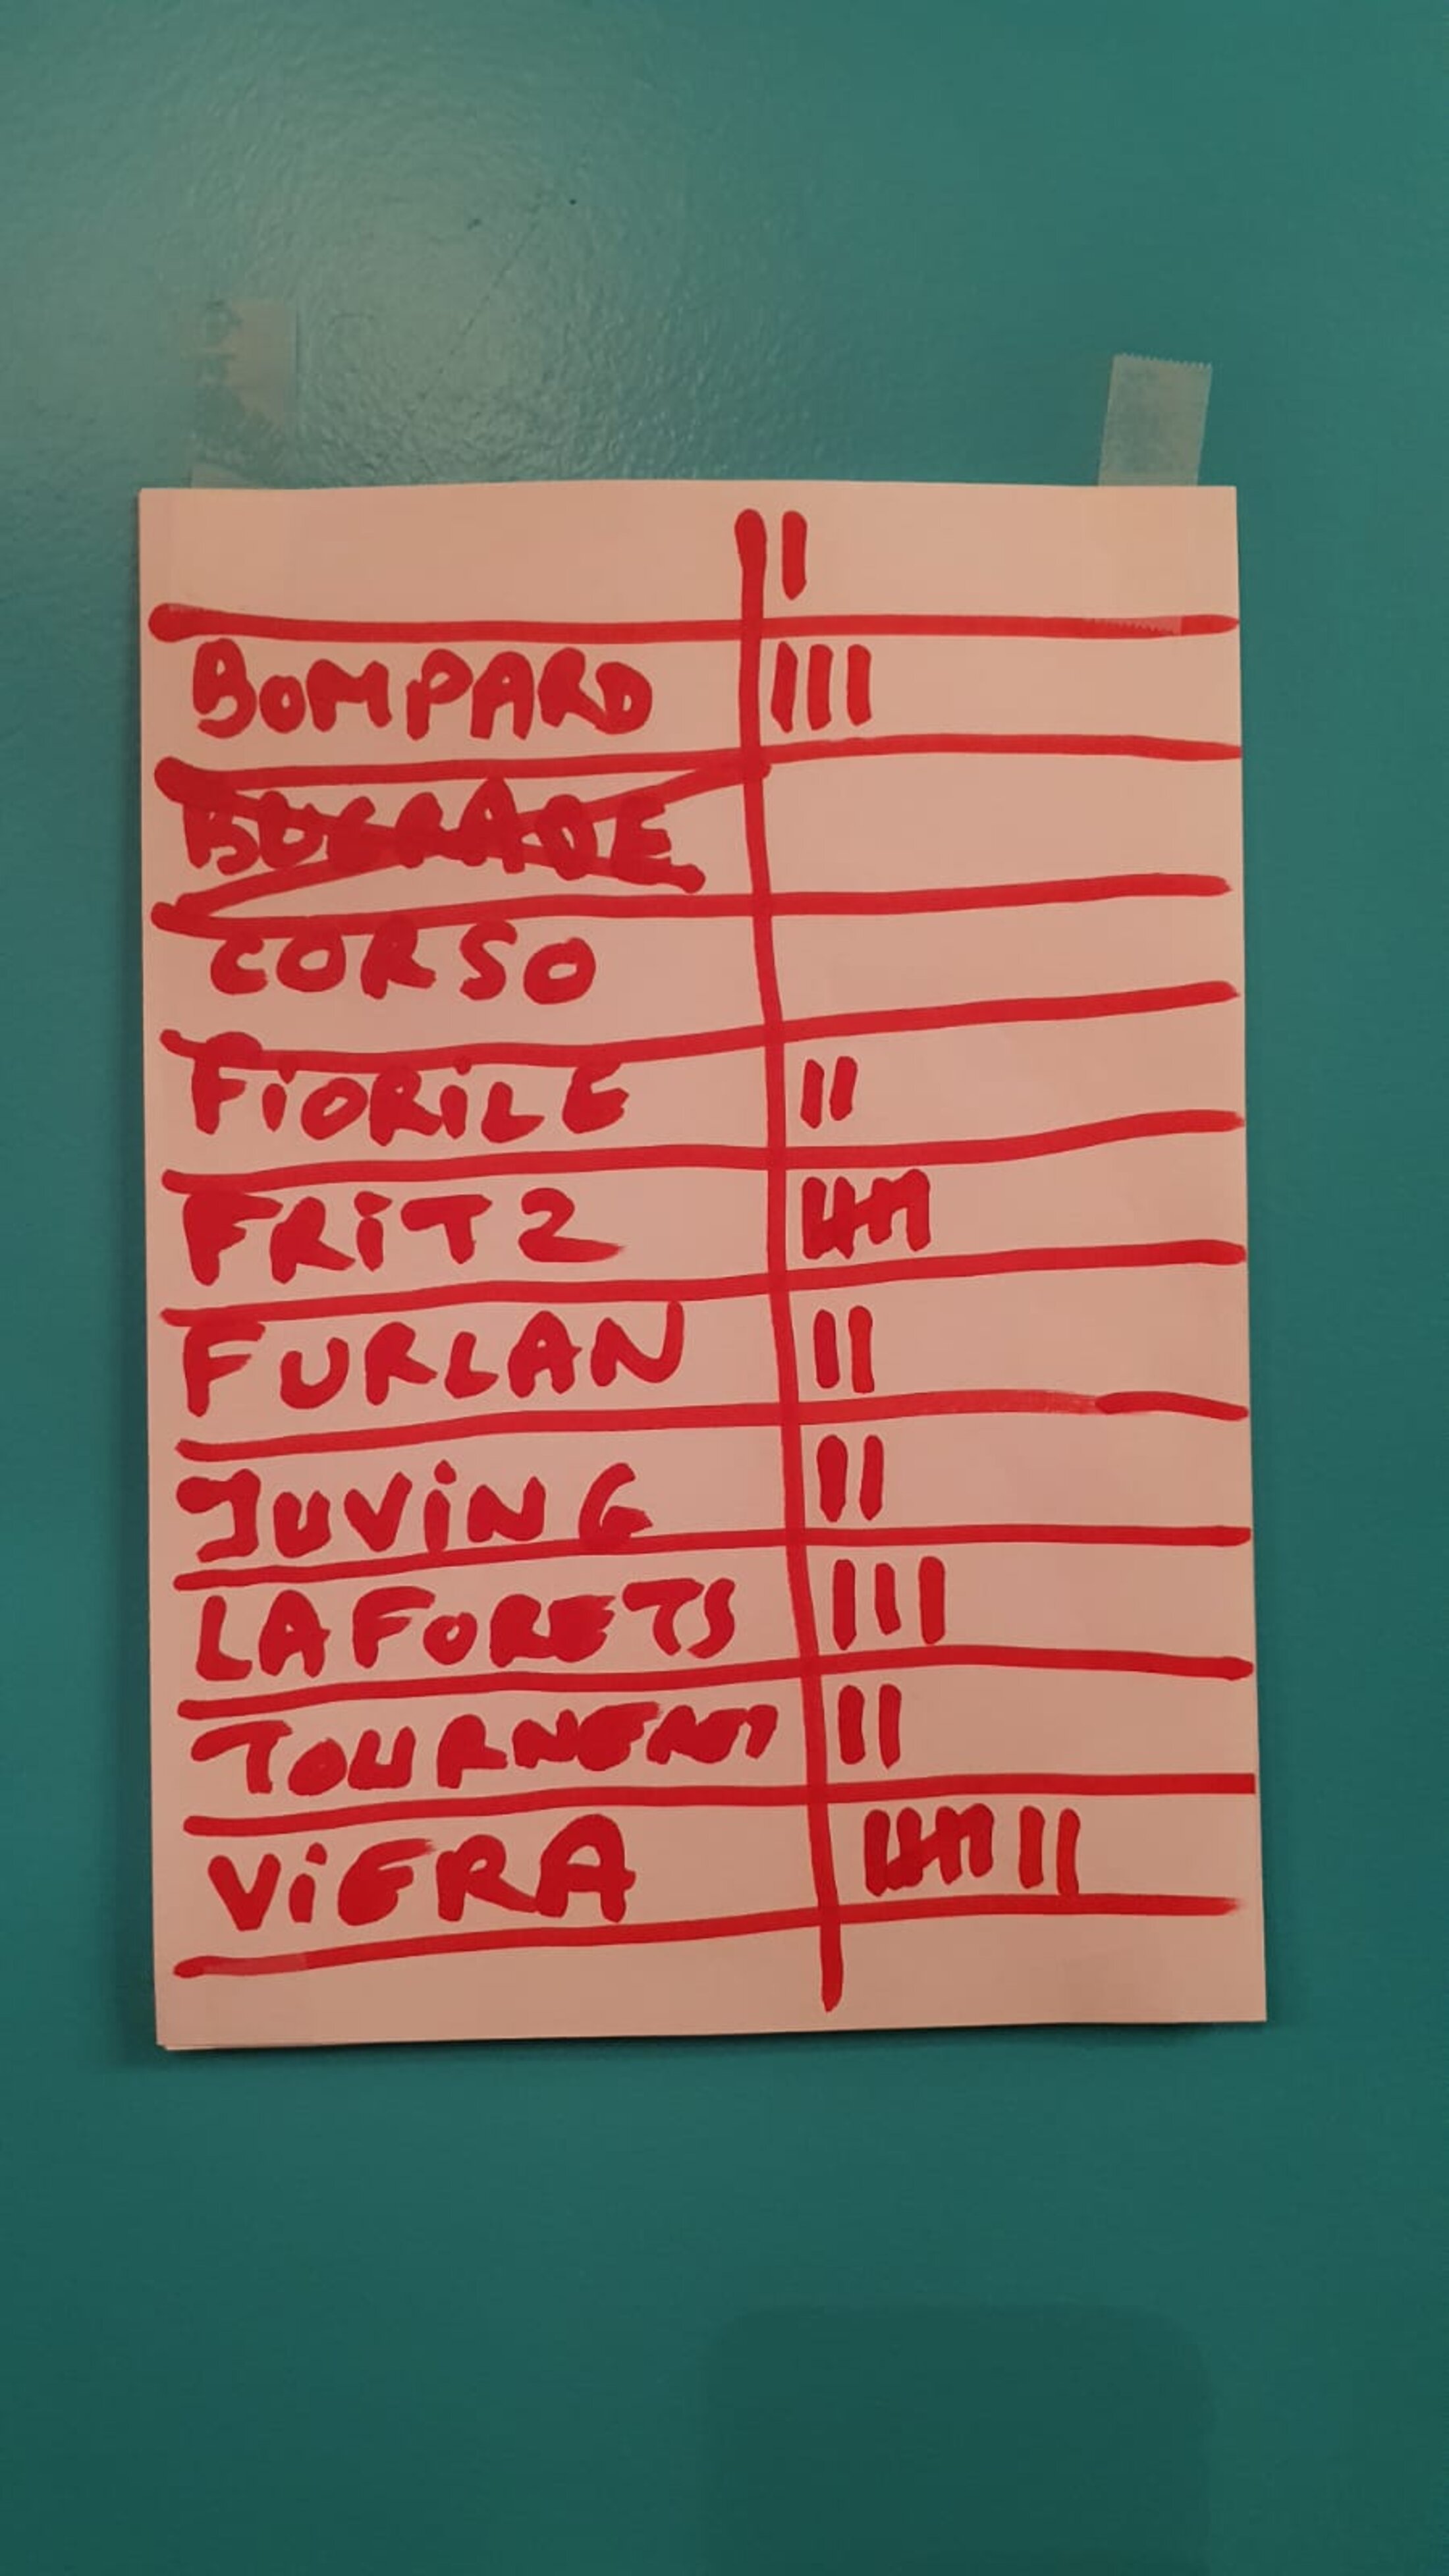 I
BOMPARD III
CORSO
FIORILE II
FRITZ IIII
FURLAN II
JUVING II
LAFORETS III
TOURNENT II
VIERA IIII II